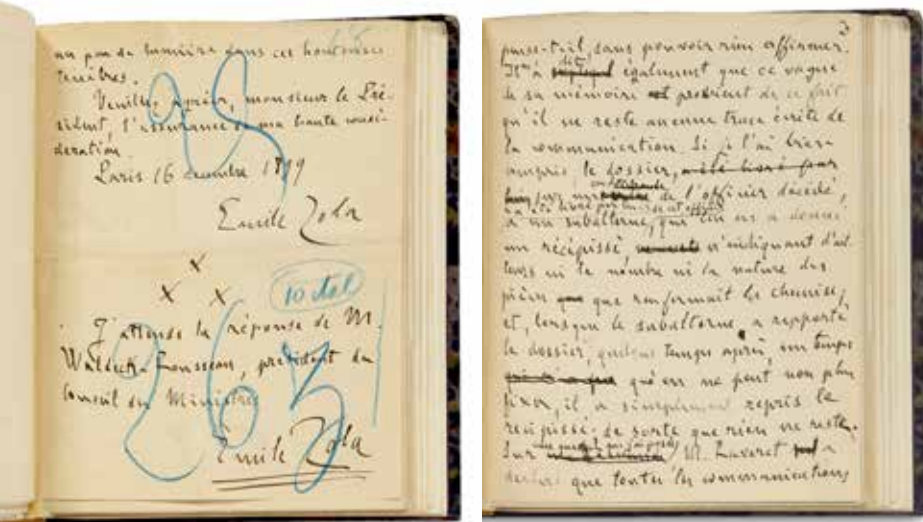 un peu de lumière dans ces honteuses
ténèbres.
Veuillez agréer, monsieur le Pré-
sident, l'assurance de ma haute consi-
dération
Paris 16 décembre 1899
Emile Zola
x
x x
10 dtal
J'attends la réponse de M.
Waldeck-Rousseau, président du
Conseil des Ministres
Emile Zola
3
puisse-t-il, sans pouvoir rien affirmer.
Il m'a dit également que ce vague
de sa mémoire provient de ce fait
qu'il ne reste aucune trace écrite de
la communication. Si je l'ai bien
compris le dossier, a été livré par
lui sur un de l'officier décédé,
à un subalterne, qui en a donné
un récépissé, n'indiquant d'ail
leurs ni le nombre ni la nature des
pièces que renfermait la chemise,
et, lorsque le subalterne a rapporté
le dossier, quelque temps après, un temps
qui n'a pas qu'on ne peut non plus
fixer, il a simplement repris le
récépissé: de sorte que rien ne reste.
Sur M. Laveret a
déclaré que toutes les communications